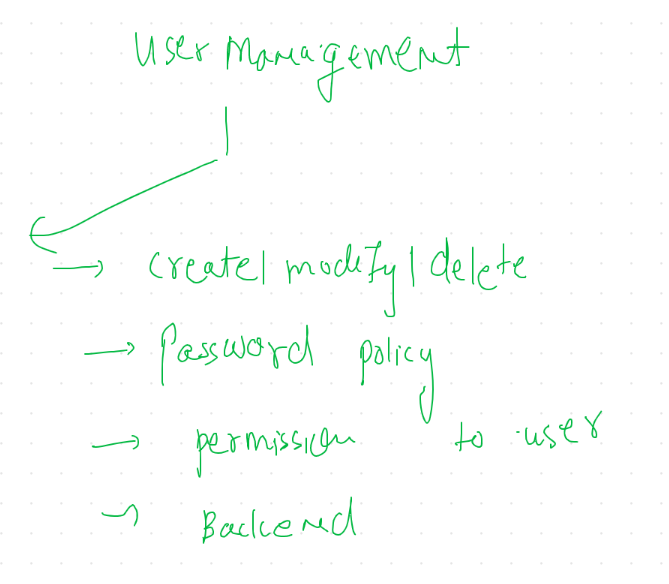 User Management
→ Create| modify| delete
→ Password policy
→ permission to user
→ Backend